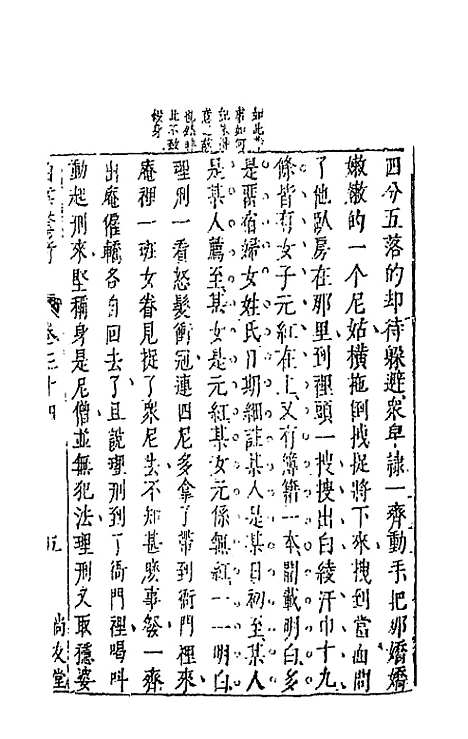 四分五落的却待躲避衆皁隸一齊動手把那嬌嬌
嫩嫩的一个尼姑橫拖倒拽捉將下來拽到當面問
了他臥房在那里到裡頭一搜搜出白綾汗巾十九
條皆有女子元紅在上又有簿籍一本開載明白多
是畱宿婦女姓氏日期細註某人是某日初至某人
是某人薦至某女是元紅某女元係無紅一一明白
理刑一看怒髮衝冠連四尼多拿了帶到衙門裡來
庵裡一班女眷見捉了衆尼去不知甚麽事發一齊
出庵僱轎各自回去了且說理刑到了衙門裡喝呌
動起刑來堅稱身是尼僧並無犯法理刑又取穩婆
卷三十四
五
尚友堂